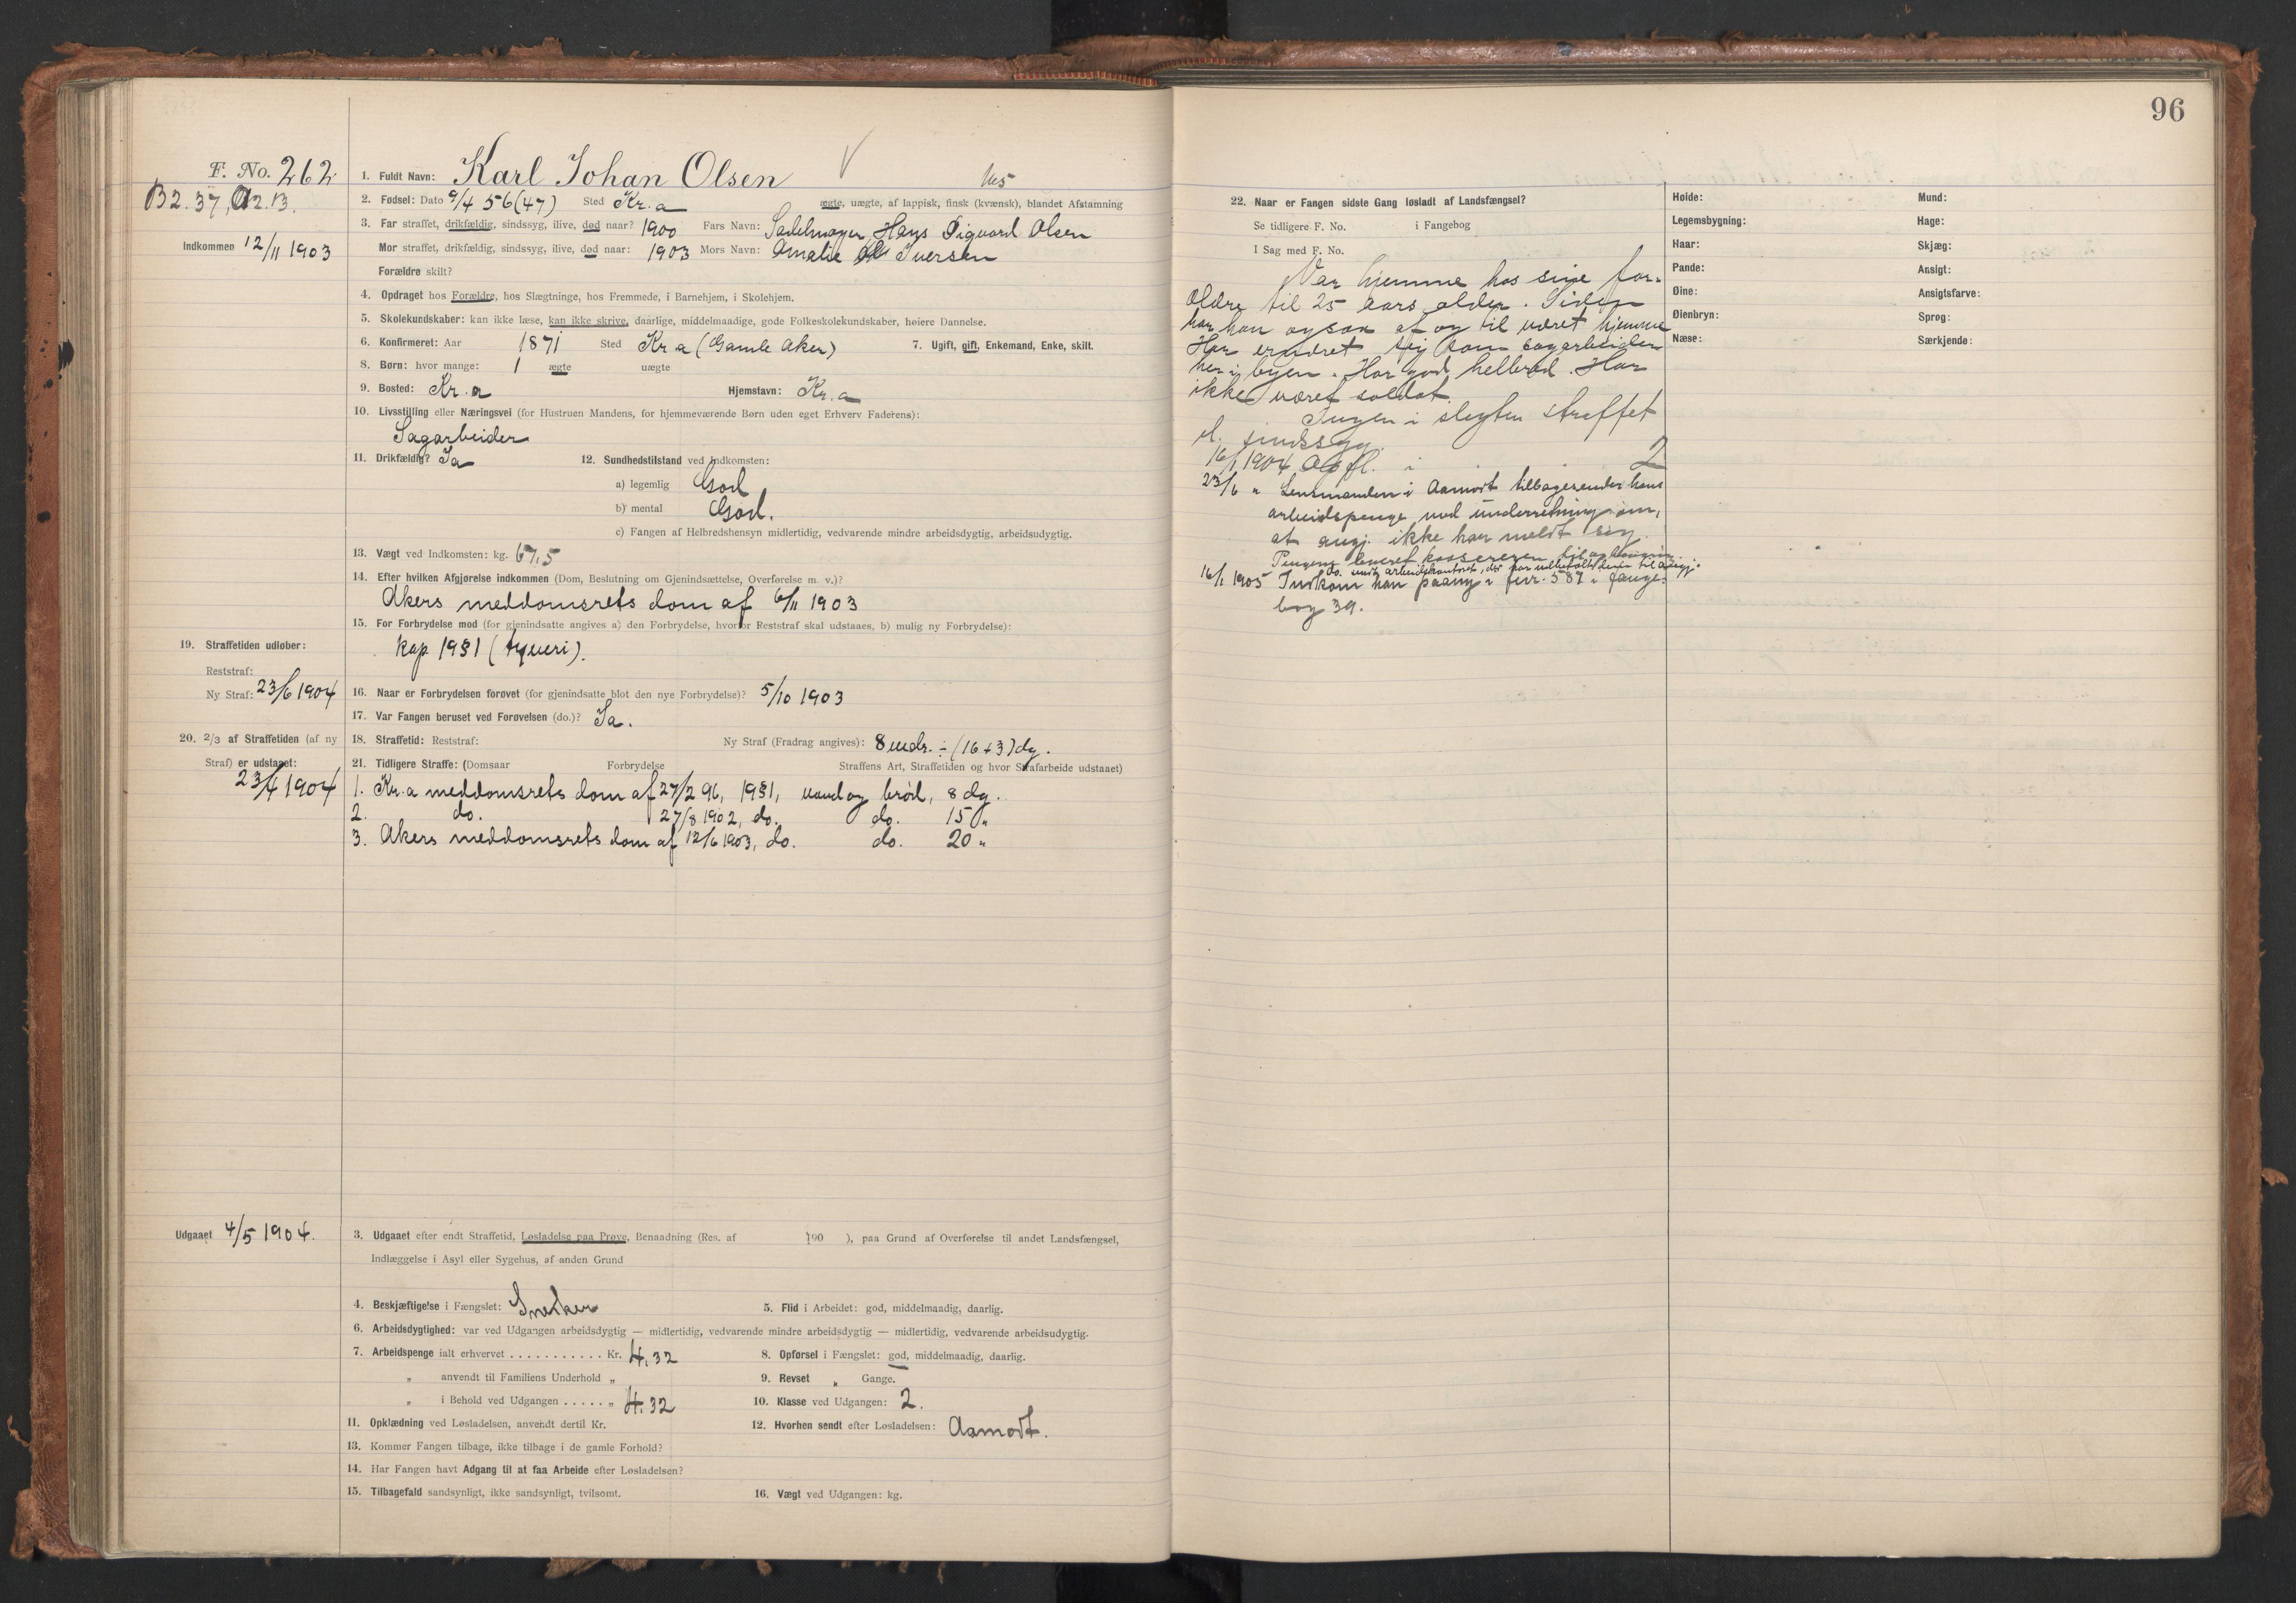 96
F. No. 262
B2.37, A2.13.
Indkommen 12/11 1903
1. Fuldt Navn: Karl Johan Olsen V
2. Fødsel: Dato 9/4 56 (47) Sted Kr.a ægte, uægte, af lappisk, finsk (kvænsk), blandet Afstamning
3. Far straffet, drikfældig, sindssyg, ilive, død naar? 1900 Fars Navn: Sadelmager Hans Sigvard Olsen
Mor straffet, drikfældig, sindssyg, ilive, død naar: 1903 Mors Navn: Amalie Iversen
Forældre skilt?
4. Opdraget hos Forældre, hos Slægtninge, hos Fremmede, i Barnehjem, i Skolehjem.
5. Skolekundskaber: kan ikke læse, kan ikke skrive, daarlige, middelmaadige, gode Folkeskolekundskaber, høiere Dannelse.
6. Konfirmeret: Aar 1871 Sted Kr a (Gamle Aker) 7. Ugift, gift, Enkemand, Enke, skilt.
8. Børn: hvor mange: 1 ægte uægte
9. Bosted: Kr.a Hjemstavn: Kr.a
10. Livsstilling eller Næringsvei (for Hustruen Mandens, for hjemmeværende Børn uden eget Erhverv Faderens):
Sagarbeider
11. Drikfældig? Ja 12. Sundhedstilstand ved Indkomsten:
a) legemlig God
b) mental God.
c) Fangen af Helbredshensyn midlertidig, vedvarende mindre arbeidsdygtig, arbeidsudygtig.
13. Vægt ved Indkomsten: kg. 67,5
14. Efter hvilken Afgjørelse indkommen (Dom, Beslutning om Gjenindsættelse, Overførelse m. v.)?
Akers meddomsrets dom af 6/11 1903
15. For Forbrydelse mod (for gjenindsatte angives a) den Forbrydelse, hvorfor Reststraf skal udstaaes, b) mulig ny Forbrydelse):
kap 19 § 1 (tyveri).
19. Straffetiden udløber:
Reststraf:
Ny Straf: 23/6 1904
16. Naar er Forbrydelsen forøvet (for gjenindsatte blot den nye Forbrydelse)? 5/10 1903
17. Var Fangen beruset ved Forøvelsen (do.)? Ja.
20. 2/3 af Straffetiden (af ny
Straf) er udstaaet:
23/4 1904
18. Straffetid: Reststraf: Ny Straf (Fradrag angives): 8 mdr. ÷ (16+3) dg.
21. Tidligere Straffe: (Domsaar Forbrydelse Straffens Art, Straffetiden og hvor Strafarbeide udstaaet)
1. Kr.a meddomsrets dom af 27/2 96, 19 § 1, vand og brød, 8 dg.
2. do. 27/8 1902, do. do. 15 "
3. Akers meddomsrets dom af 12/6 1903, do. do. 20 "
Udgaaet 4/5 1904.
3. Udgaaet efter endt Straffetid, Løsladelse paa Prøve, Benaadning (Res. af 190 ), paa Grund af Overførelse til andet Landsfængsel,
Indlæggelse i Asyl eller Sygehus, af anden Grund
4. Beskjæftigelse i Fængslet: Snedker 5. Flid i Arbeidet: god, middelmaadig, daarlig.
6. Arbeidsdygtighed: var ved Udgangen arbeidsdygtig — midlertidig, vedvarende mindre arbeidsdygtig — midlertidig, vedvarende arbeidsudygtig.
7. Arbeidspenge ialt erhvervet . . . . . . . . . . . Kr. 4,32 8. Opførsel i Fængslet: god, middelmaadig, daarlig.
" anvendt til Familiens Underhold " 9. Revset " Gange.
" i Behold ved Udgangen . . . . . " 4.32 10. Klasse ved Udgangen: 2.
11. Opklædning ved Løsladelsen, anvendt dertil Kr. 12. Hvorhen sendt efter Løsladelsen: Aamodt.
13. Kommer Fangen tilbage, ikke tilbage i de gamle Forhold?
14. Har Fangen havt Adgang til at faa Arbeide efter Løsladelsen?
15. Tilbagefald sandsynligt, ikke sandsynligt, tvilsomt. 16. Vægt ved Udgangen: kg.
22. Naar er Fangen sidste Gang løsladt af Landsfængsel?
Se tidligere F. No. i Fangebog
I Sag med F. No.
Var hjemme hos sine for-
ældre til 25 aars alder. Siden
har han ogsaa af og til været hjemme
Har ernæret sig som sagarbeider
her i byen. Har god helbred. Har
ikke været soldat.
Ingen i slegten straffet
el. sindssyg.
16/1 1904 Opfl. i 2
23/6 " Lensmanden i Aamodt tilbagesender hans
arbeidspenge med underretning om,
at angj. ikke har meldt sig.
Pengene leveret kassereren
do. sendt arbeidskontoret, der har udbetalt dem til angj.
16/1 1905 Indkom han paany i fnr. 587 i fange-
bog 39.
Høide:
Legemsbygning:
Haar:
Pande:
Øine:
Øienbryn:
Næse:
Mund:
Hage:
Skjæg:
Ansigt:
Ansigtsfarve:
Sprog:
Særkjende: